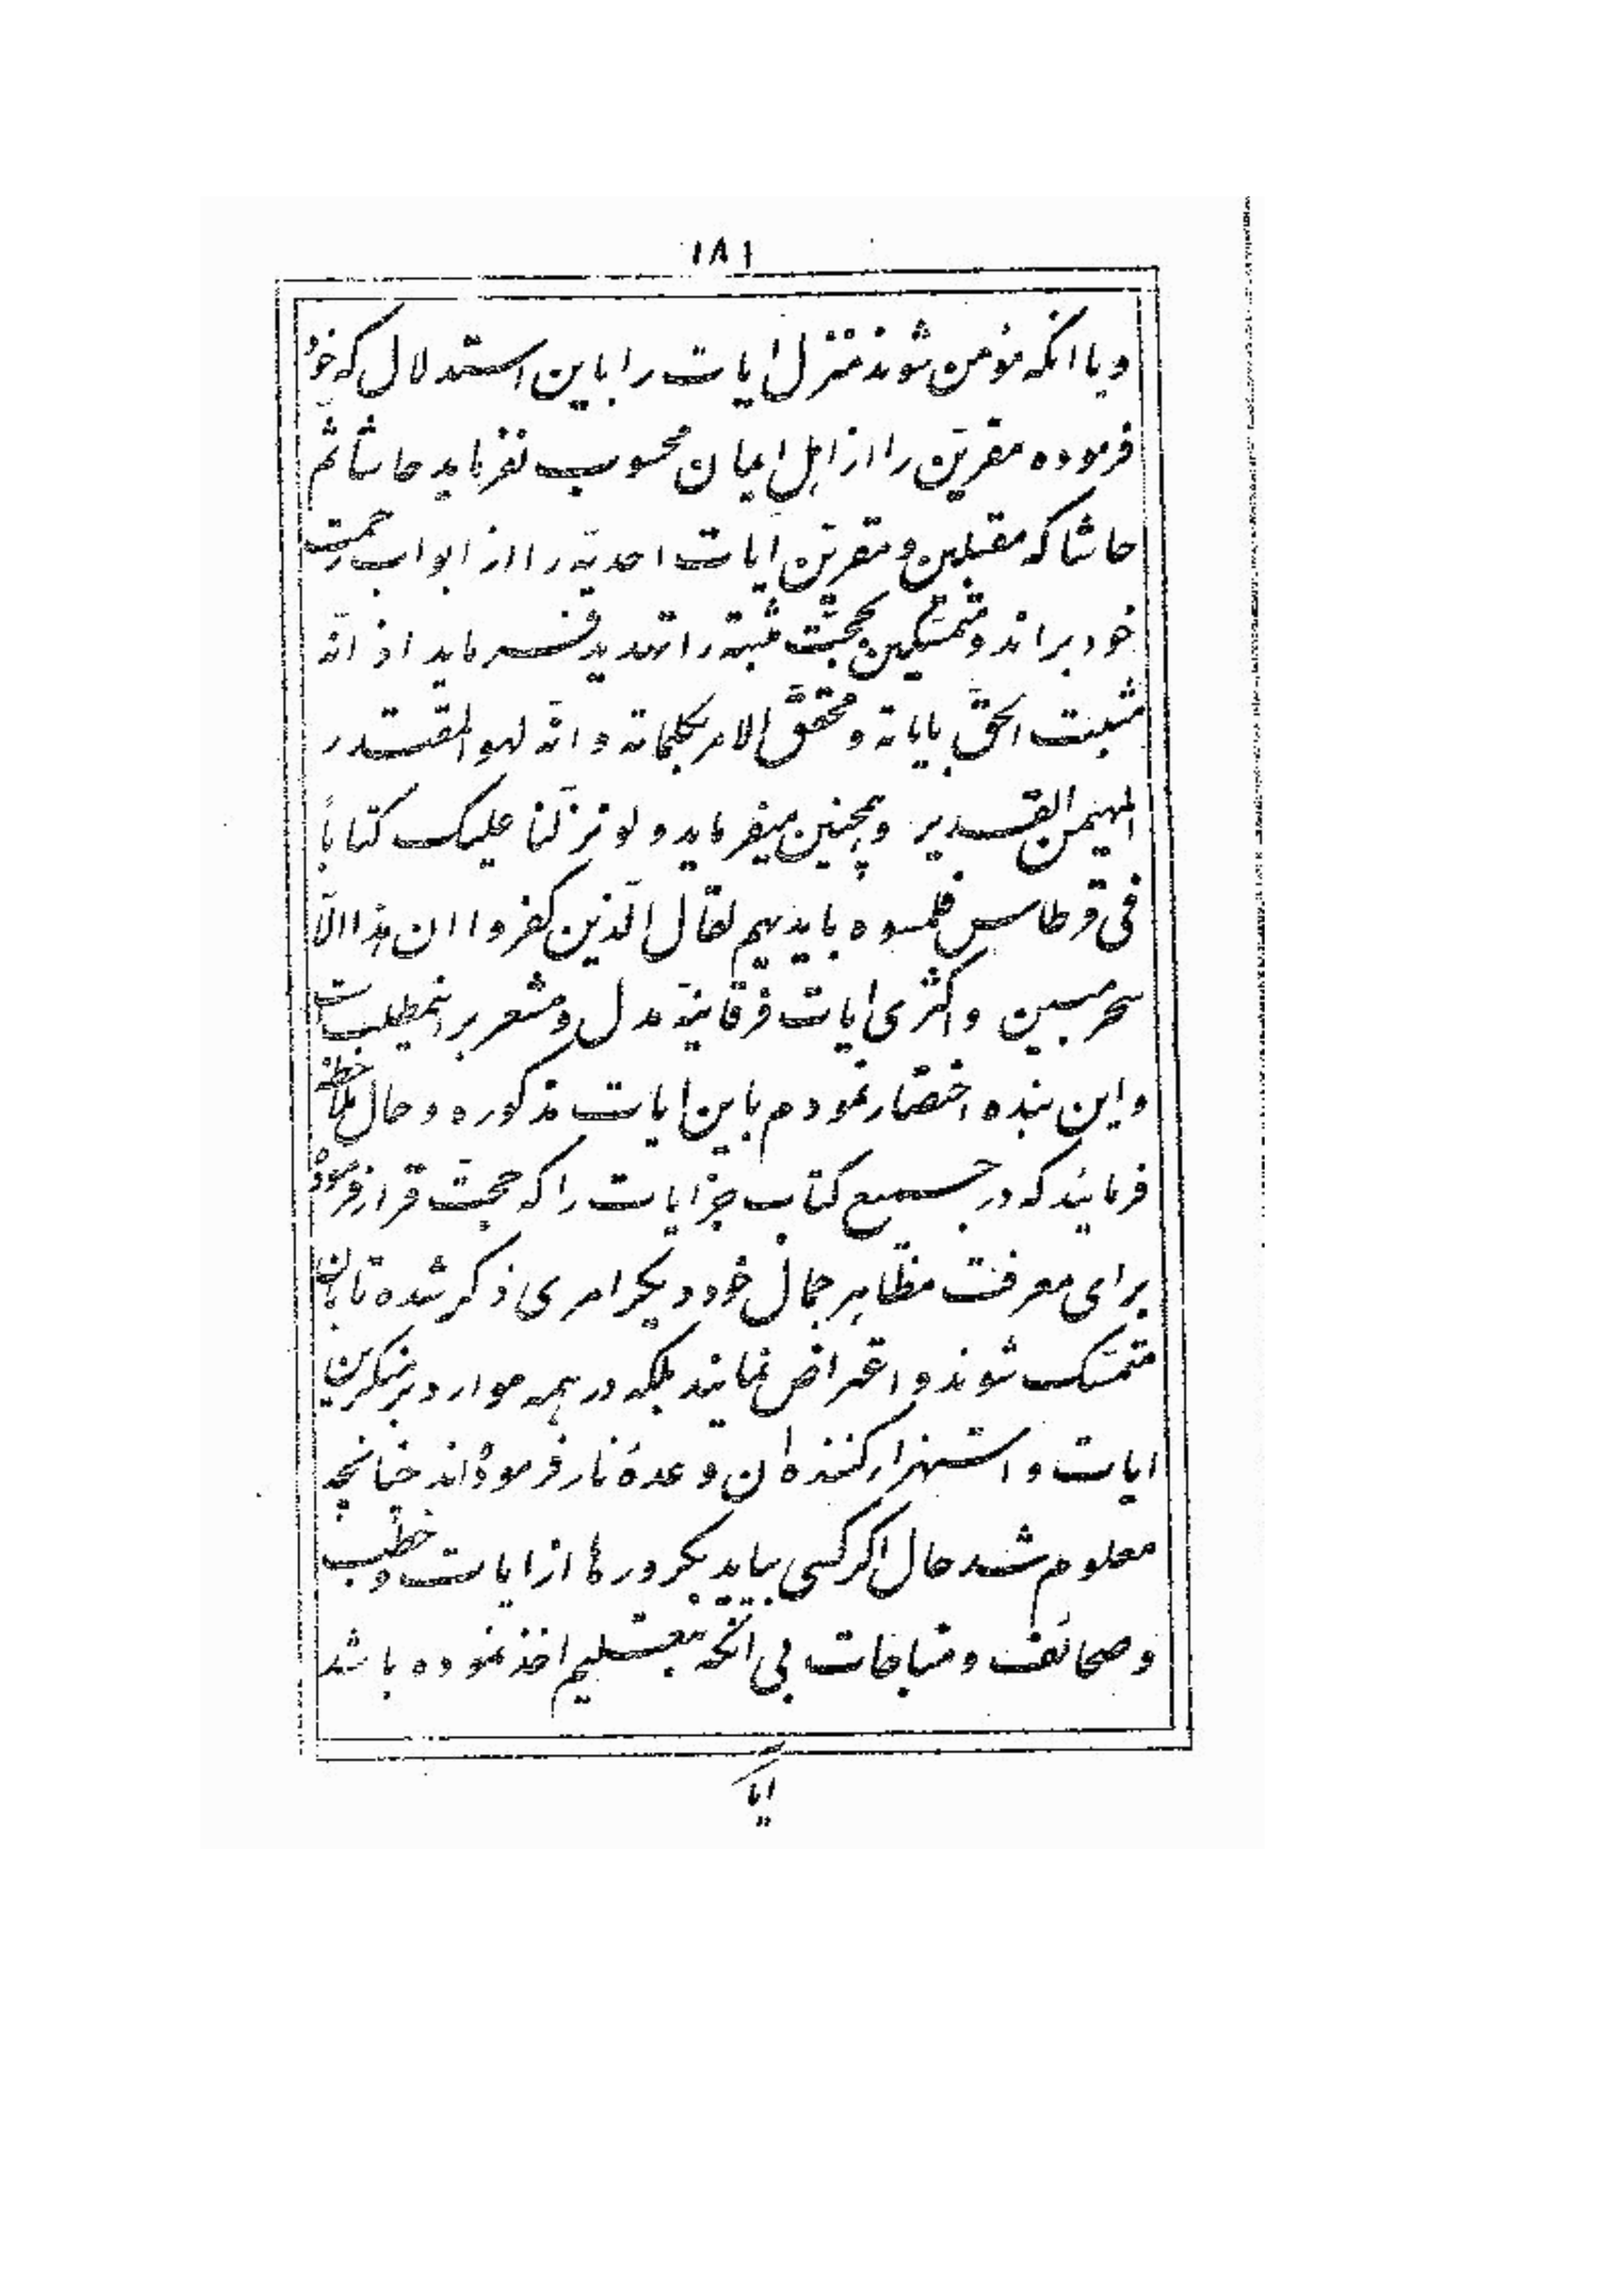 ۱۸۱
و یا انکه مؤمن شوند منزل ایات را باین استدلال که خود
فرموده مقرین را از اهل ایمان محسوب نفرماید حاشا ثم
حاشا که مقبلین و مقرین ایات احدیه را از ابواب رحمت
خود براند و متمسکین بحجت مثبته را تهدید فرماید اذ انه
مثبت الحق بایاته و محقق الامر بکلماته و انه لهو المقتدر
المهیمن القدیر و همچنین میفرماید و لو نزلنا علیک کتاباً
فی قرطاس فلمسوه بایدیهم لقال الذین کفروا ان هذا الا
سحر مبین و اکثری ایات فرقانیه مدل و مشعر بر اینمطلبست
و این بنده اختصار نمودم باین ایات مذکوره و حال ملاحظه
فرمایند که در جمیع کتاب جز ایات را که حجت قرار فرموده
برای معرفت مظاهر جمال خود دیگر امری ذکر شده تا بان
متمسک شوند و اعتراض نمایند بلکه در همه موارد بر منکرین
ایات و استهزار کننده ان وعدهٔ نار فرموده‌اند چنانچه
معلوم شد حال اکر کسی بیاید بکرورها از ایات و خطب
و صحائف و مناجات بی انکه بتعلیم اخذ نموده باشد
ایا